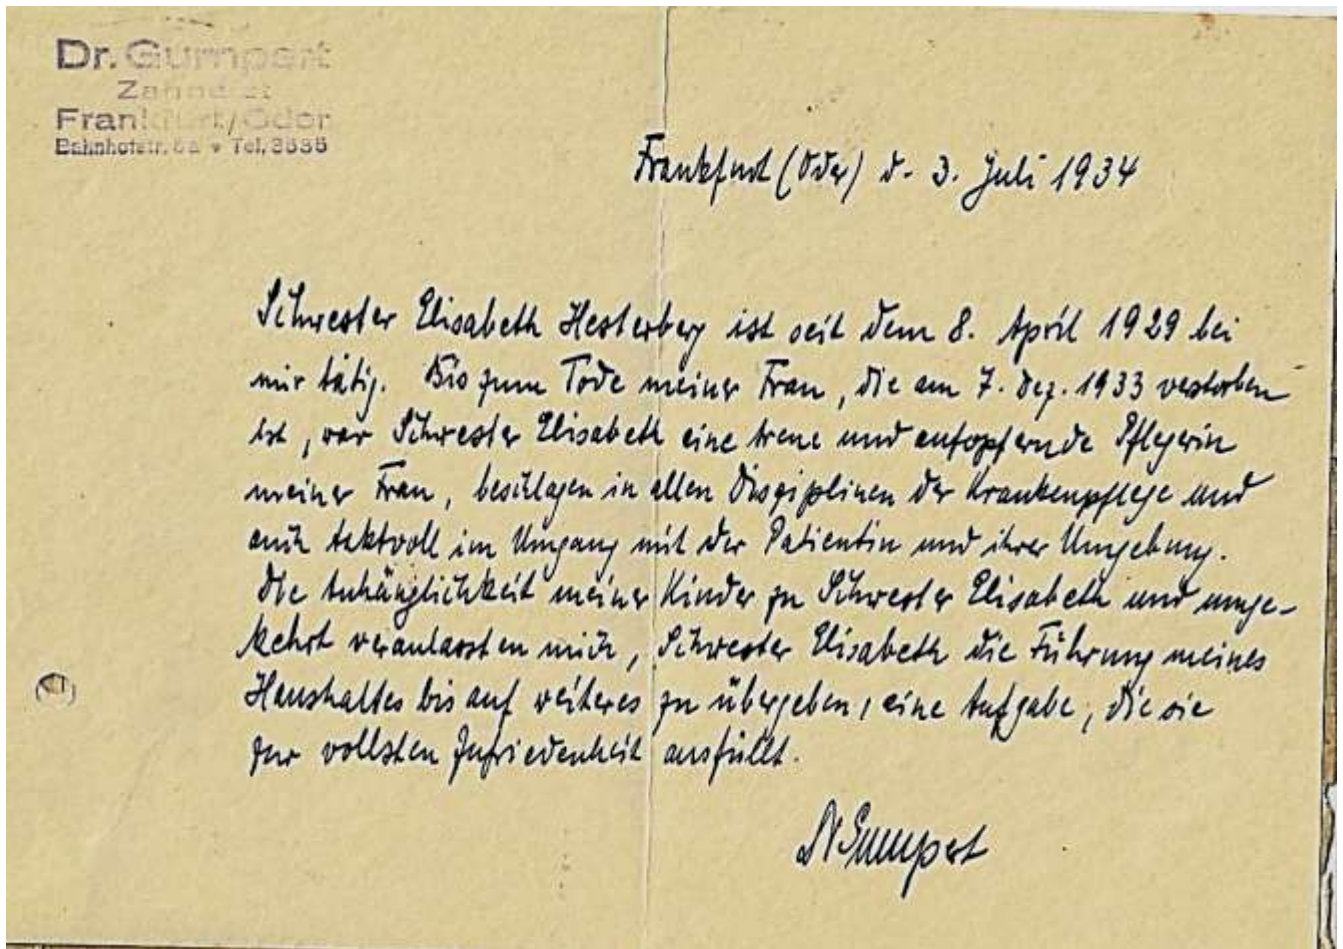 Dr. Gumpert
Zahnarzt
Frankfurt/Oder
Bahnhofstr. Tel. 3535
Frankfurt (Oder) d. 3. Juli 1934
Schwester Elisabeth Hesterberg ist seit dem 8. April 1929 bei
mir tätig. Bis zum Tode meiner Frau, die am 7. Dez. 1933 verstorben
ist, war Schwester Elisabeth eine treue und aufopfernde Pflegerin
meiner Frau, beschlagen in allen Disziplinen der Krankenpflege und
auch taktvoll im Umgang mit der Patientin und ihrer Umgebung.
Die Anhänglichkeit meiner Kinder zu Schwester Elisabeth und umge-
kehrt veranlassten mich, Schwester Elisabeth die Führung meines
Haushaltes bis auf weiteres zu übergeben, eine Aufgabe, die sie
zur vollsten Zufriedenheit ausfüllt.
Dr Gumpert